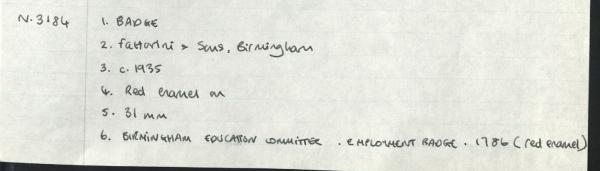 N.3184 1. BADGE
2. fattorini & Sons, Birmingham
3. c. 1935
4. Red enamel on
5. 31 mm
6. BIRMINGHAM EDUCATION COMMITTEE . EMPLOYMENT BADGE . 1786 (red enamel)